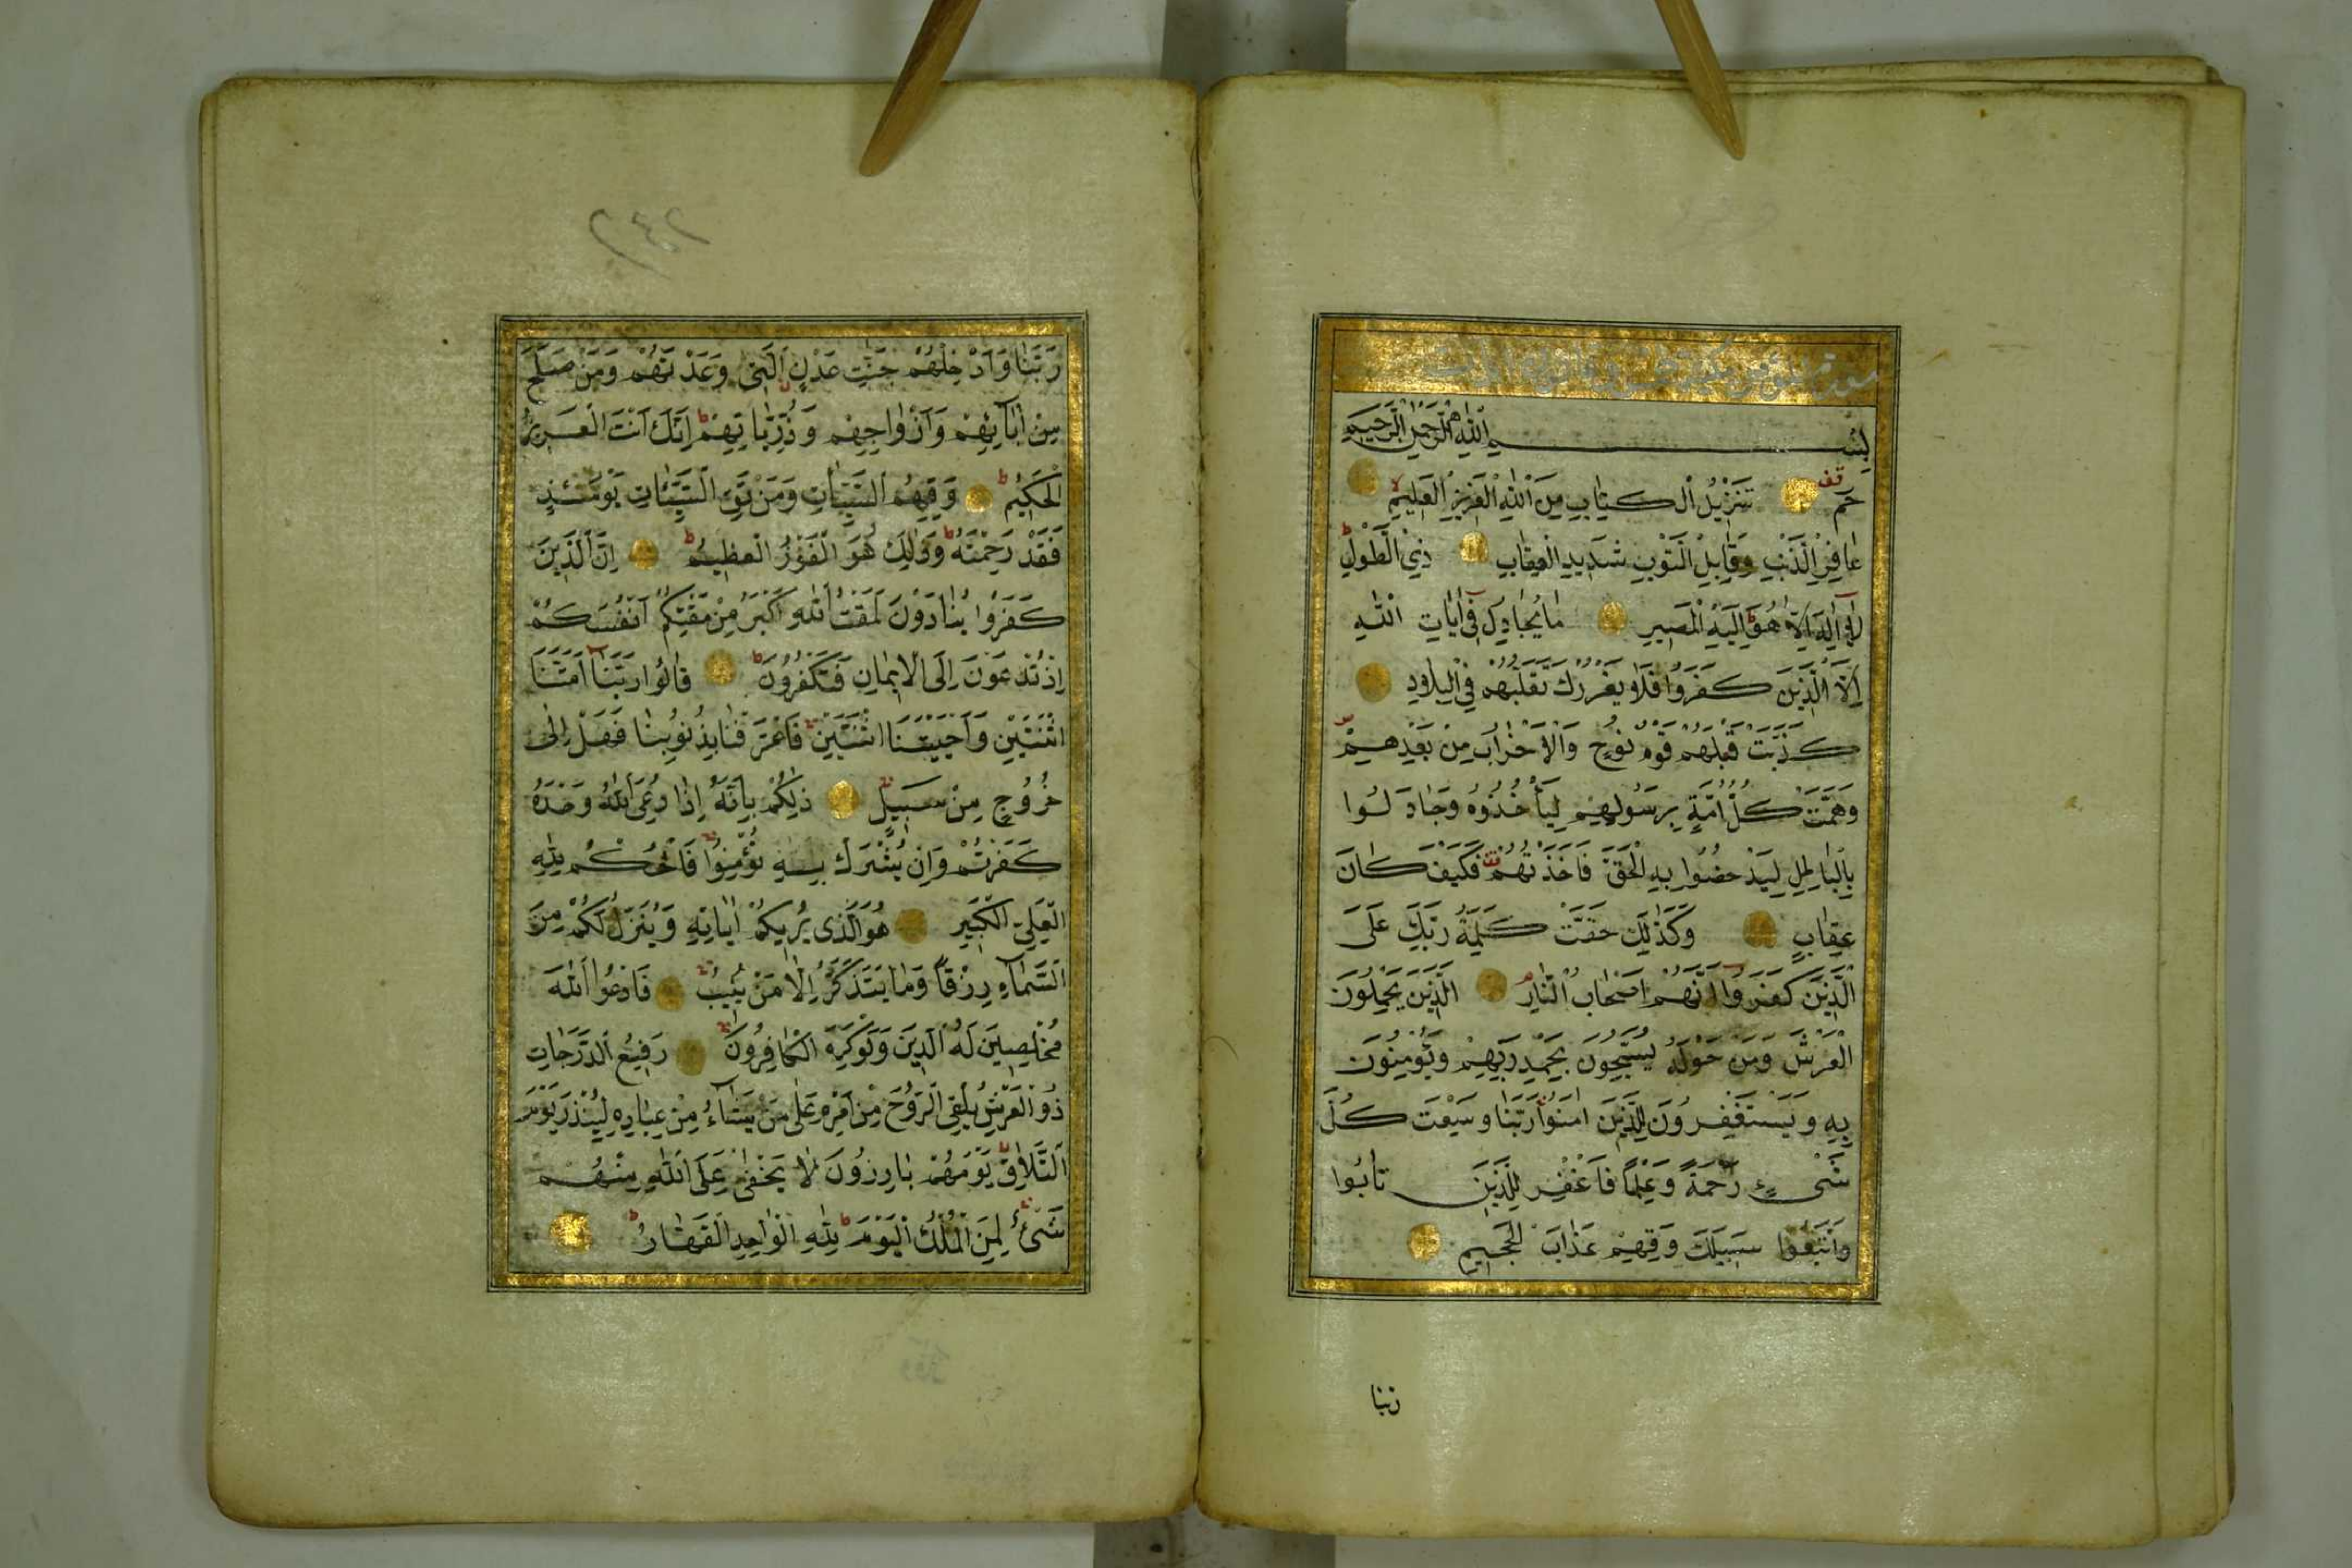 سورة المؤمن مكية
بِسْمِ اللّٰهِ الرَّحْمٰنِ الرَّحِيمِ
قف
حٰم تَنْزِيلُ الْكِتَابِ مِنَ اللّٰهِ الْعَزِيزِ الْعَلِيمِ
غَافِرِ الذَّنْبِ وَقَابِلِ التَّوْبِ شَدِيدِ الْعِقَابِ ذِي الطَّوْلِ
لَا إِلٰهَ إِلَّا هُوَ إِلَيْهِ الْمَصِيرُ مَا يُجَادِلُ فِي آيَاتِ اللّٰهِ
إِلَّا الَّذِينَ كَفَرُوا فَلَا يَغْرُرْكَ تَقَلُّبُهُمْ فِي الْبِلَادِ
كَذَّبَتْ قَبْلَهُمْ قَوْمُ نُوحٍ وَالْأَحْزَابُ مِنْ بَعْدِهِمْ
وَهَمَّتْ كُلُّ أُمَّةٍ بِرَسُولِهِمْ لِيَأْخُذُوهُ وَجَادَلُوا
بِالْبَاطِلِ لِيُدْحِضُوا بِهِ الْحَقَّ فَأَخَذْتُهُمْ فَكَيْفَ كَانَ
عِقَابِ وَكَذٰلِكَ حَقَّتْ كَلِمَةُ رَبِّكَ عَلَى
الَّذِينَ كَفَرُوا أَنَّهُمْ أَصْحَابُ النَّارِ الَّذِينَ يَحْمِلُونَ
الْعَرْشَ وَمَنْ حَوْلَهُ يُسَبِّحُونَ بِحَمْدِ رَبِّهِمْ وَيُؤْمِنُونَ
بِهِ وَيَسْتَغْفِرُونَ لِلَّذِينَ اٰمَنُوا رَبَّنَا وَسِعْتَ كُلَّ
شَيْءٍ رَحْمَةً وَعِلْمًا فَاغْفِرْ لِلَّذِينَ تَابُوا
وَاتَّبَعُوا سَبِيلَكَ وَقِهِمْ عَذَابَ الْجَحِيمِ
ربنا
٢٤٢
رَبَّنَا وَأَدْخِلْهُمْ جَنَّاتِ عَدْنٍ الَّتِي وَعَدْتَهُمْ وَمَنْ صَلَحَ
مِنْ اٰبَائِهِمْ وَأَزْوَاجِهِمْ وَذُرِّيَّاتِهِمْ إِنَّكَ أَنْتَ الْعَزِيزُ
الْحَكِيمُ وَقِهِمُ السَّيِّئَاتِ وَمَنْ تَقِ السَّيِّئَاتِ يَوْمَئِذٍ
فَقَدْ رَحِمْتَهُ وَذٰلِكَ هُوَ الْفَوْزُ الْعَظِيمُ إِنَّ الَّذِينَ
كَفَرُوا يُنَادَوْنَ لَمَقْتُ اللّٰهِ أَكْبَرُ مِنْ مَقْتِكُمْ أَنْفُسَكُمْ
إِذْ تُدْعَوْنَ إِلَى الْإِيمَانِ فَتَكْفُرُونَ قَالُوا رَبَّنَا أَمَتَّنَا
اثْنَتَيْنِ وَأَحْيَيْتَنَا اثْنَتَيْنِ فَاعْتَرَفْنَا بِذُنُوبِنَا فَهَلْ إِلٰى
خُرُوجٍ مِنْ سَبِيلٍ ذٰلِكُمْ بِأَنَّهُ إِذَا دُعِيَ اللّٰهُ وَحْدَهُ
كَفَرْتُمْ وَإِنْ يُشْرَكْ بِهِ تُؤْمِنُوا فَالْحُكْمُ لِلّٰهِ
الْعَلِيِّ الْكَبِيرِ هُوَ الَّذِي يُرِيكُمْ اٰيَاتِهِ وَيُنَزِّلُ لَكُمْ مِنَ
السَّمَاءِ رِزْقًا وَمَا يَتَذَكَّرُ إِلَّا مَنْ يُنِيبُ فَادْعُوا اللّٰهَ
مُخْلِصِينَ لَهُ الدِّينَ وَلَوْ كَرِهَ الْكَافِرُونَ رَفِيعُ الدَّرَجَاتِ
ذُو الْعَرْشِ يُلْقِي الرُّوحَ مِنْ أَمْرِهِ عَلٰى مَنْ يَشَاءُ مِنْ عِبَادِهِ لِيُنْذِرَ يَوْمَ
التَّلَاقِ يَوْمَ هُمْ بَارِزُونَ لَا يَخْفٰى عَلَى اللّٰهِ مِنْهُمْ
شَيْءٌ لِمَنِ الْمُلْكُ الْيَوْمَ لِلّٰهِ الْوَاحِدِ الْقَهَّارِ